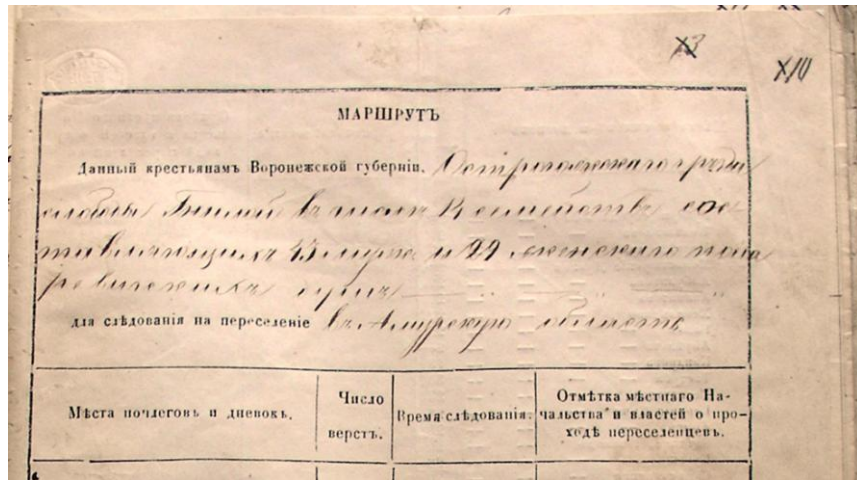 МАРШРУТЪ
Данный крестьянамъ Воронежской губерніи, Острогожскаго
слободы Гнилой въ числѣ семействъ, сос-
тавляющихъ 43 муж. и 29 женскаго пола
ревизскихъ
для слѣдованія на переселеніе въ Амурскую область
Мѣста ночлеговъ и дневокъ.
Число верстъ.
Время слѣдованія.
Отмѣтка мѣстнаго На-
чальства и властей о про-
ходѣ переселенцевъ.